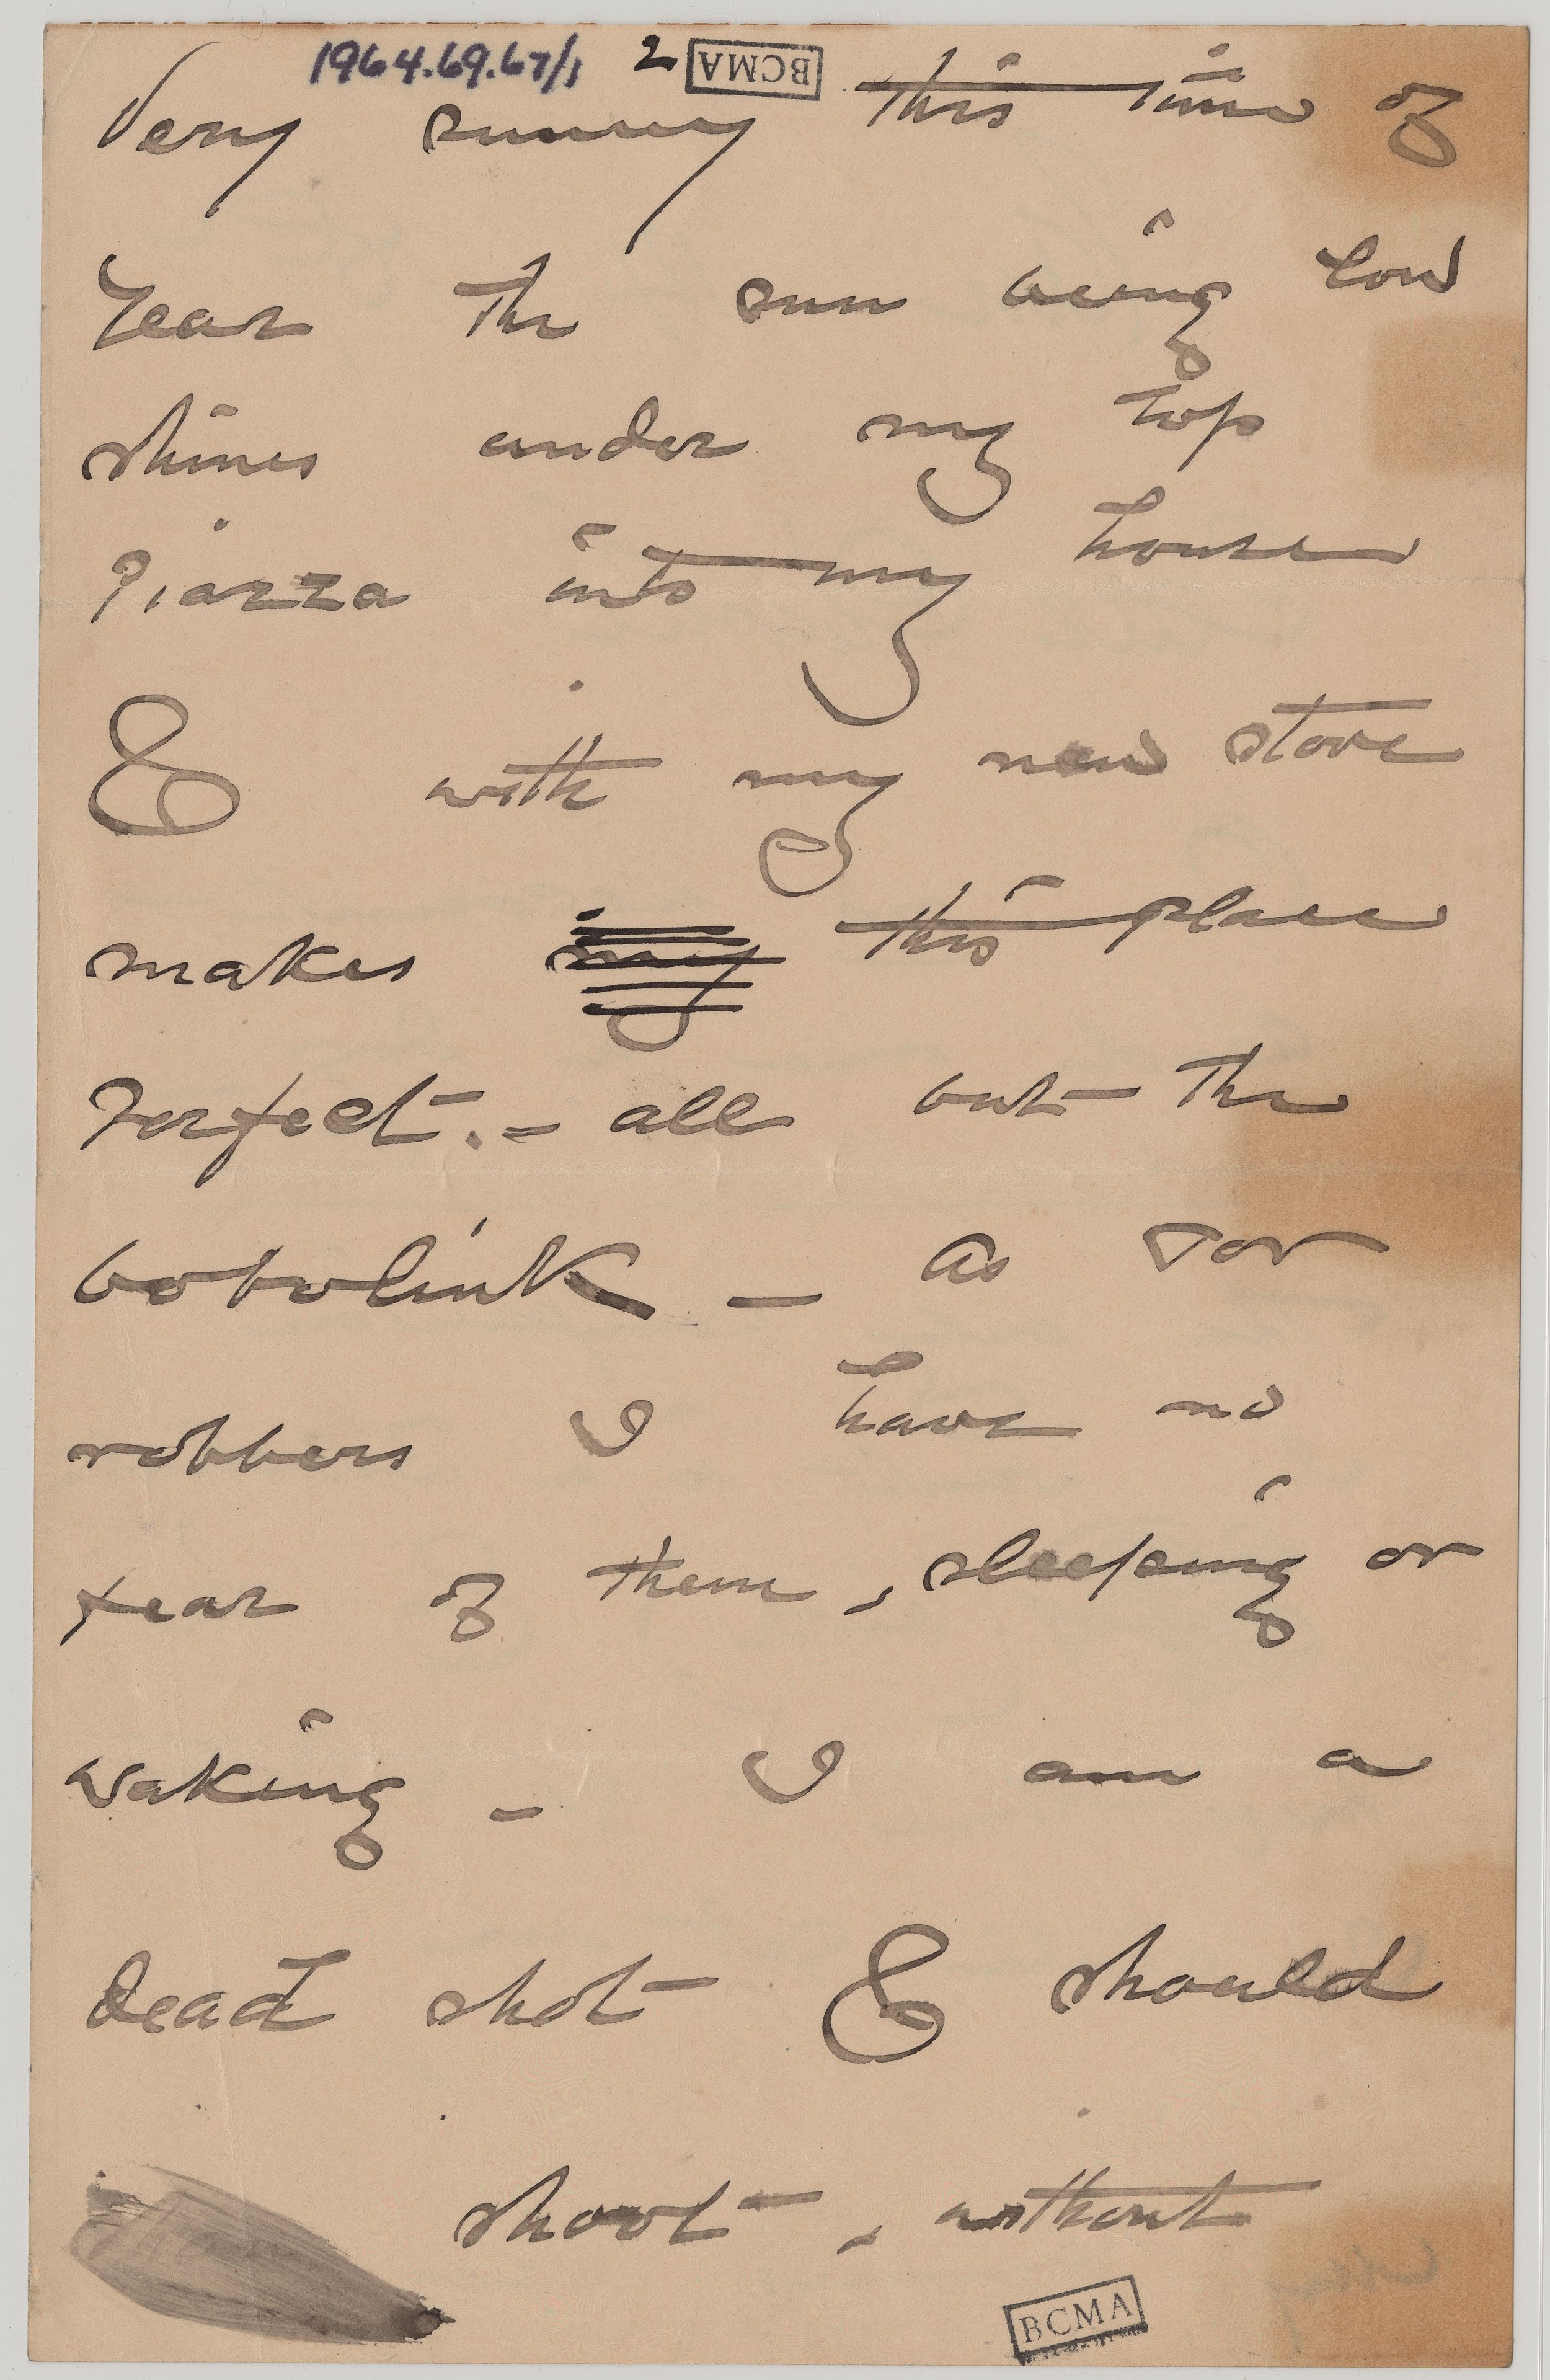 1964.69.67/1 2 BCMA
Very sunny this time of
Year the sun being low
shines under my top
Piazza into my house
& with my new stove
makes my this place
Perfect. - all but the
bobolink - as for
robbers I have no
fear of them, sleeping or
waking - I am a
dead shot & should
shoot, without
BCMA